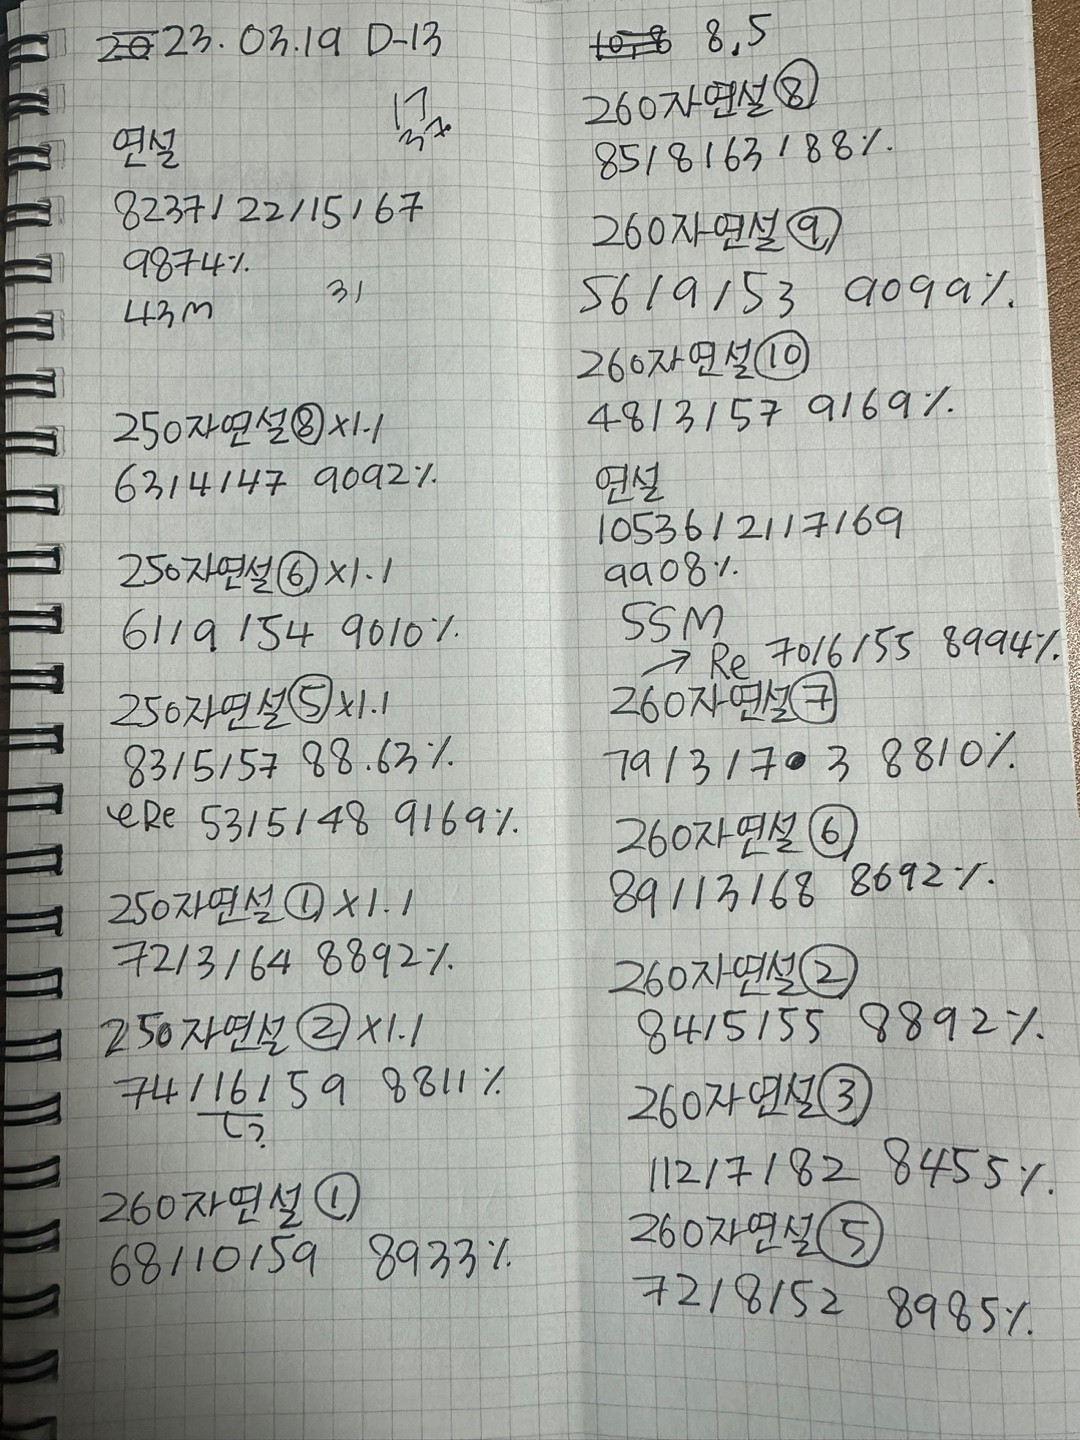 23. 03.19 D-13
17
37
연설
8237/22/15/67
9874%
43M
31
250자연설⑧×1.1
63/4/47 9092%
250자연설⑥×1.1
61/9/54 9010%
250자연설⑤×1.1
83/5/57 88.63%
Re 53/5/48 9169%
250자연설①×1.1
72/3/64 8892%
250자연설②×1.1
74/16/59 8811%
?
260자연설①
68/10/59 8933%
8,5
260자연설⑧
85/8/63/88%
260자연설⑨
56/9/53 9099%
260자연설⑩
48/3/57 9169%
연설
10536/21/7/69
9908%
55M
→ Re 70/6/55 8994%
260자연설⑦
79/3/7 3 8810%
260자연설⑥
89/13/68 8692%
260자연설②
84/5/55 8892%
260자연설③
112/7/82 8455%
260자연설⑤
72/8/52 8985%